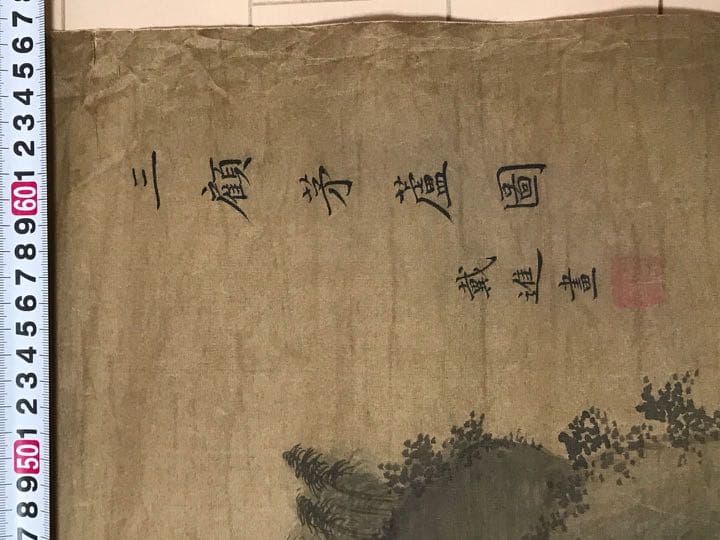 三顧茅蘆圖
戴進畫
8 7 6 5 4 3 2 1 60 9 8 7 6 5 4 3 2 1 50 9 8 7